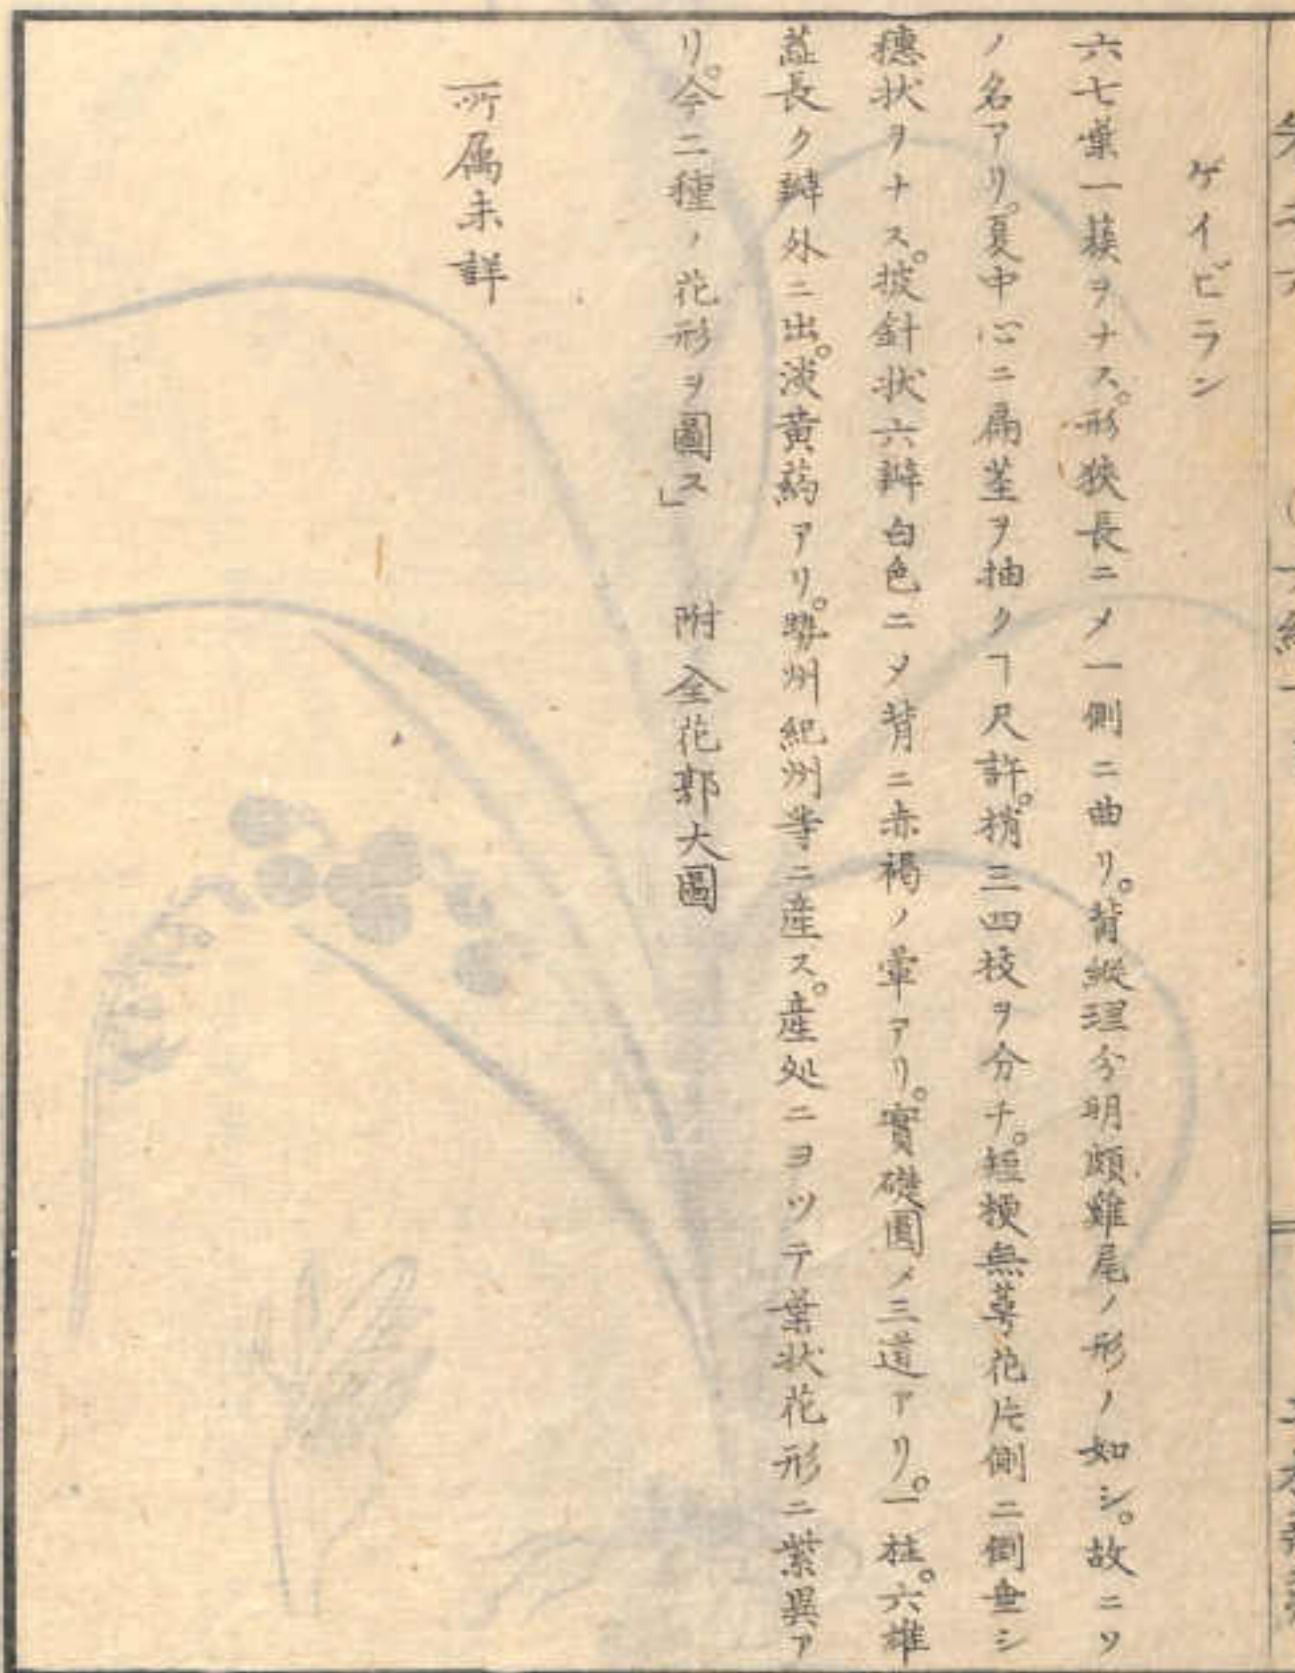 ケイビラン
六七葉一蔟ヲナス。形狹長ニメ一側ニ曲リ。背縦理分明頗雞尾ノ形ノ如シ。故ニソ
ノ名アリ。夏中心ニ扁茎ヲ抽クヿ尺許。梢三四枝ヲ分チ。短梗無萼花片側ニ倒垂シ
穗状ヲナス。披針状六瓣白色ニメ背ニ赤褐ノ暈アリ。實礎圓メ三道アリ。一柱。六雄
蕋長ク瓣外ニ出。淡黄葯アリ。勢州紀州等ニ産ス。産処ニヨツテ葉状花形ニ紫異ア
リ。今二種ノ花形ヲ圖ス」 附全花郭大圖
所属未詳